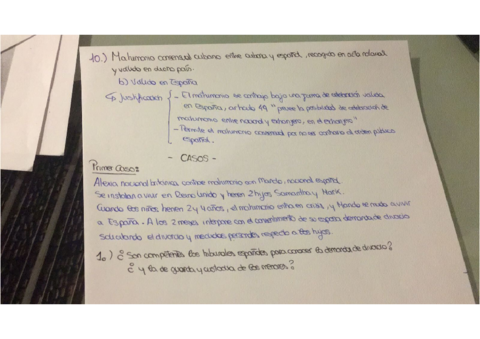 10.) Matrimonio consensual cubano entre cubana y español, recogido en acta notarial
y válido en dicho país.
b) Válido en España
Justificación
- El matrimonio se contrajo bajo una forma de celebración válida
en España, artículo 49 "prevee la posibilidad de celebración de
matrimonio entre nacional y extranjero, en el extranjero"
- Permite el matrimonio consensual por no ser contrario al orden público
español.
- CASOS -
Primer Caso:
nacional británica, contrae matrimonio con Mando, nacional español.
Se instalan a vivir en Reino Unido y tienen 2 hijos Samantha y Mark.
Cuando los niños tienen 2 y 4 años, el matrimonio entra en crisis, y Mando se muda a vivir
a España. A los 2 meses, interpone con el consentimiento de su esposa demanda de divorcio
solicitando el divorcio y medidas personales respecto a los hijos.
1.) ¿Son competentes los tribunales españoles para conocer la demanda de divorcio?
¿y la de guarda y custodia de los menores?